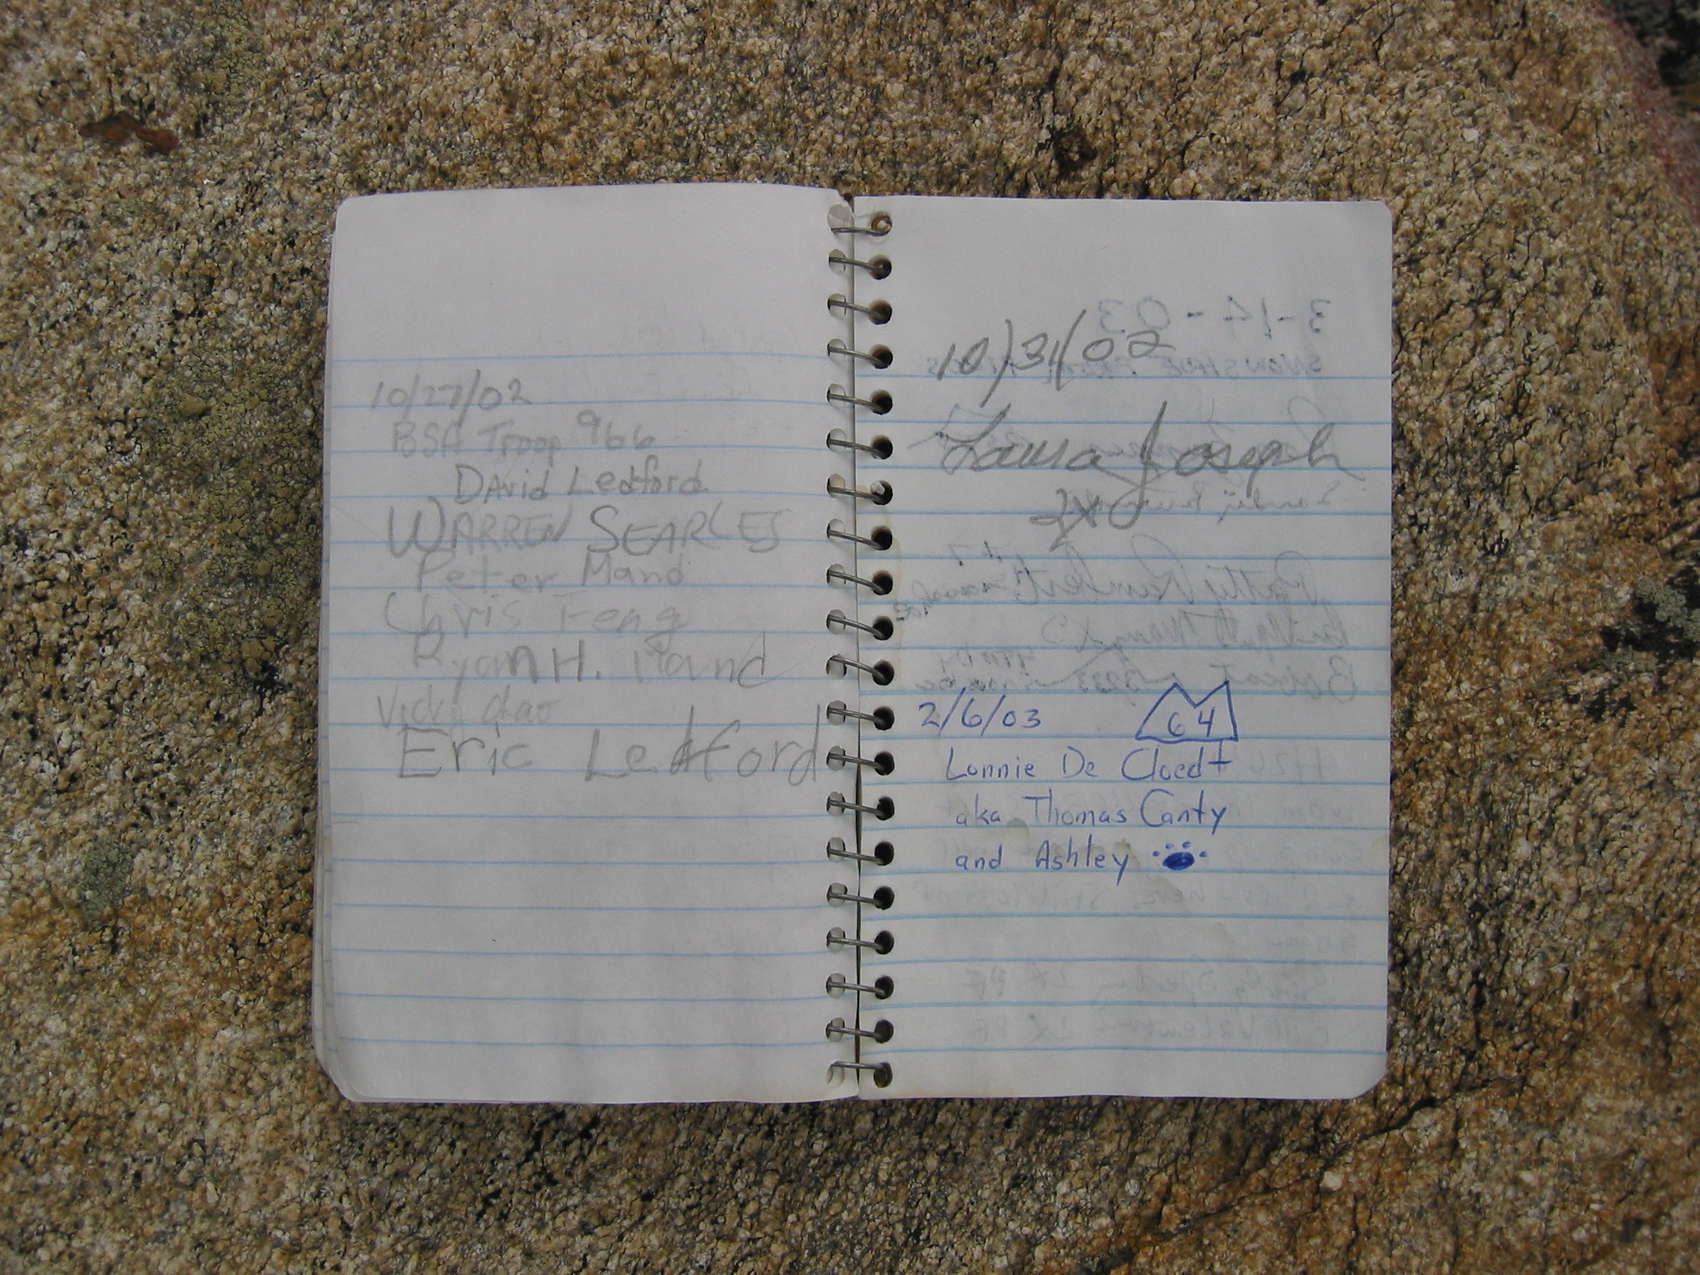 10/27/02
BSA Troop 966
David Ledford
WARREN SEARLES
Peter Mand
Chris Feng
Ryan H. Mand
Vicki
Eric Ledford
10/31/02
Laura Joseph
2/6/03 64
Lonnie De Cloedt
aka Thomas Canty
and Ashley